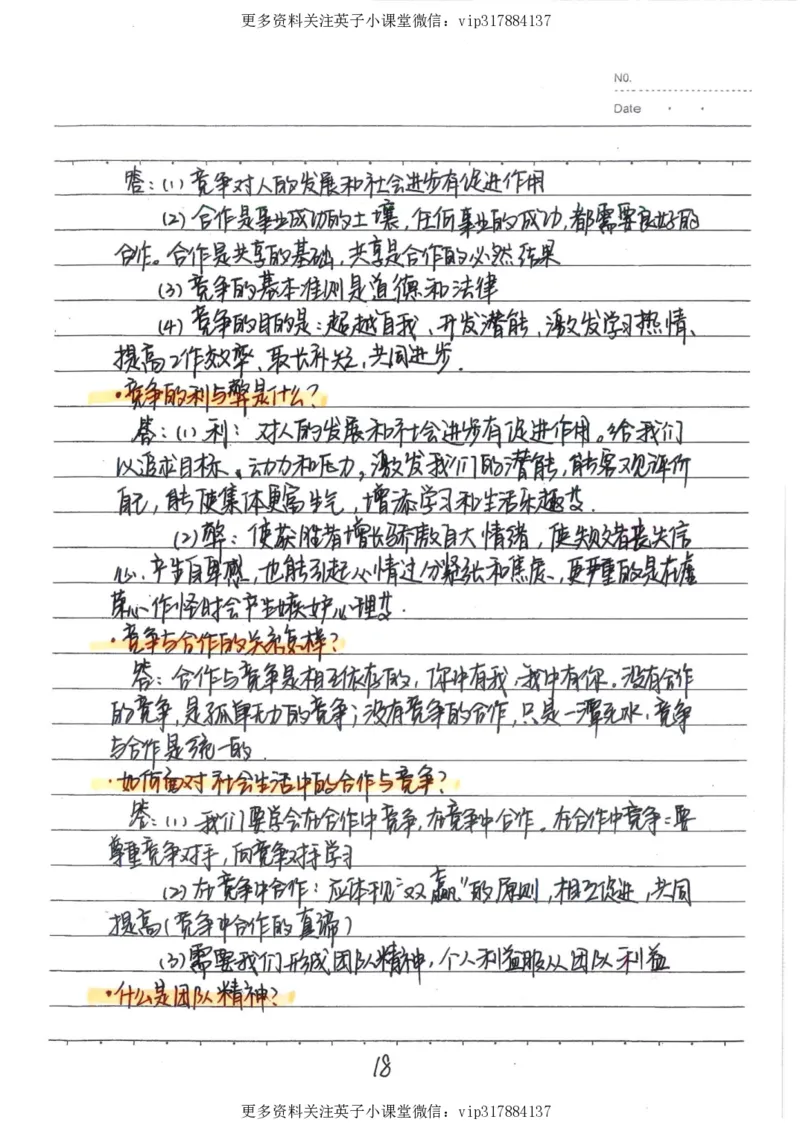 更多资料关注英子小课堂微信：vip317884137
NO.
Date
答：(1) 竞争对人的发展和社会进步有促进作用
(2) 合作是事业成功的土壤，任何事业的成功，都需要良好的
合作。合作是共享的基础，共享是合作的必然结果
(3) 竞争的基本准则是道德和法律
(4) 竞争的目的是：超越自我、开发潜能，激发学习热情、
提高工作效率、取长补短，共同进步．
·竞争的利与弊是什么？
答：(1) 利：对人的发展和社会进步有促进作用。给我们
以追求目标，动力和压力，激发我们的潜能，能客观评价
自己，能使集体更富生气，增添学习和生活乐趣等．
(2) 弊：使获胜者增长骄傲自大情绪，使失败者丧失信
心、产生自卑感，也能引起心情过分紧张和焦虑、更严重的是在虚
荣心作怪时会产生嫉妒心理等．
·竞争与合作的关系怎样？
答：合作与竞争是相互依存的，你中有我，我中有你。没有合作
的竞争，是孤单无力的竞争；没有竞争的合作，只是一潭死水，竞争
与合作是统一的．
·如何面对社会生活中的合作与竞争？
答：(1) 我们要学会在合作中竞争，在竞争中合作。在合作中竞争：要
尊重竞争对手，向竞争对手学习
(2) 在竞争中合作：应体现“双赢”的原则，相互促进，共同
提高(竞争中合作的真谛)
(3) 需要我们形成团队精神，个人利益服从团队利益
·什么是团队精神？
18
更多资料关注英子小课堂微信：vip317884137